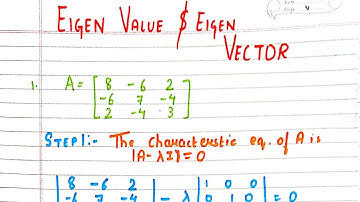 EIGEN VALUE & EIGEN
VECTOR
1. A = [ 8 -6 2
-6 7 -4
2 -4 3 ]
STEP1:- The characterstic eq. of A is
|A-λI|=0
| 8 -6 2 | - λ | 1 0 0 | = 0
-6 7 -4 0 1 0